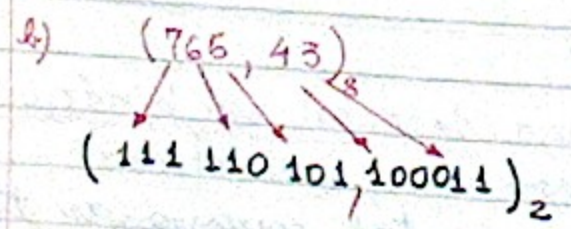 b) (765,43)8
(111 110 101,100011)2